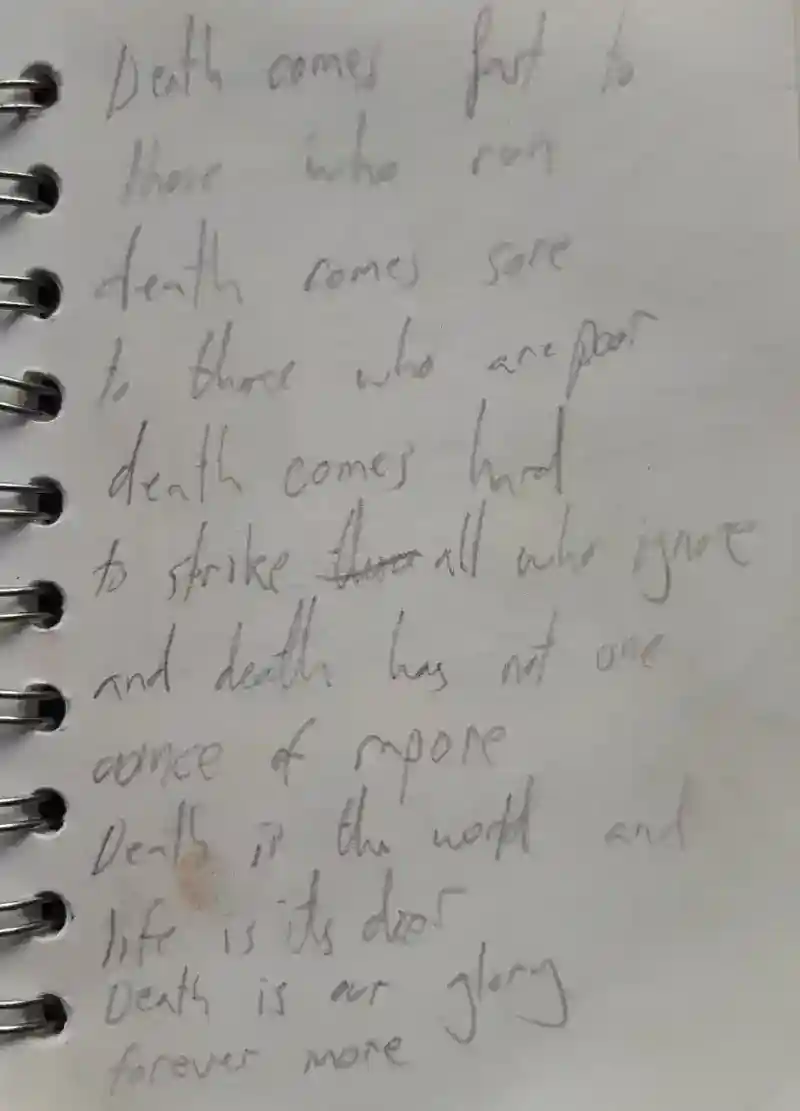 Death comes fast to
those who run
death comes sore
to those who are poor
death comes hard
to strike all who ignore
and death has not one
ounce of
Death is the world and
life is its door
Death is our glory
forever more